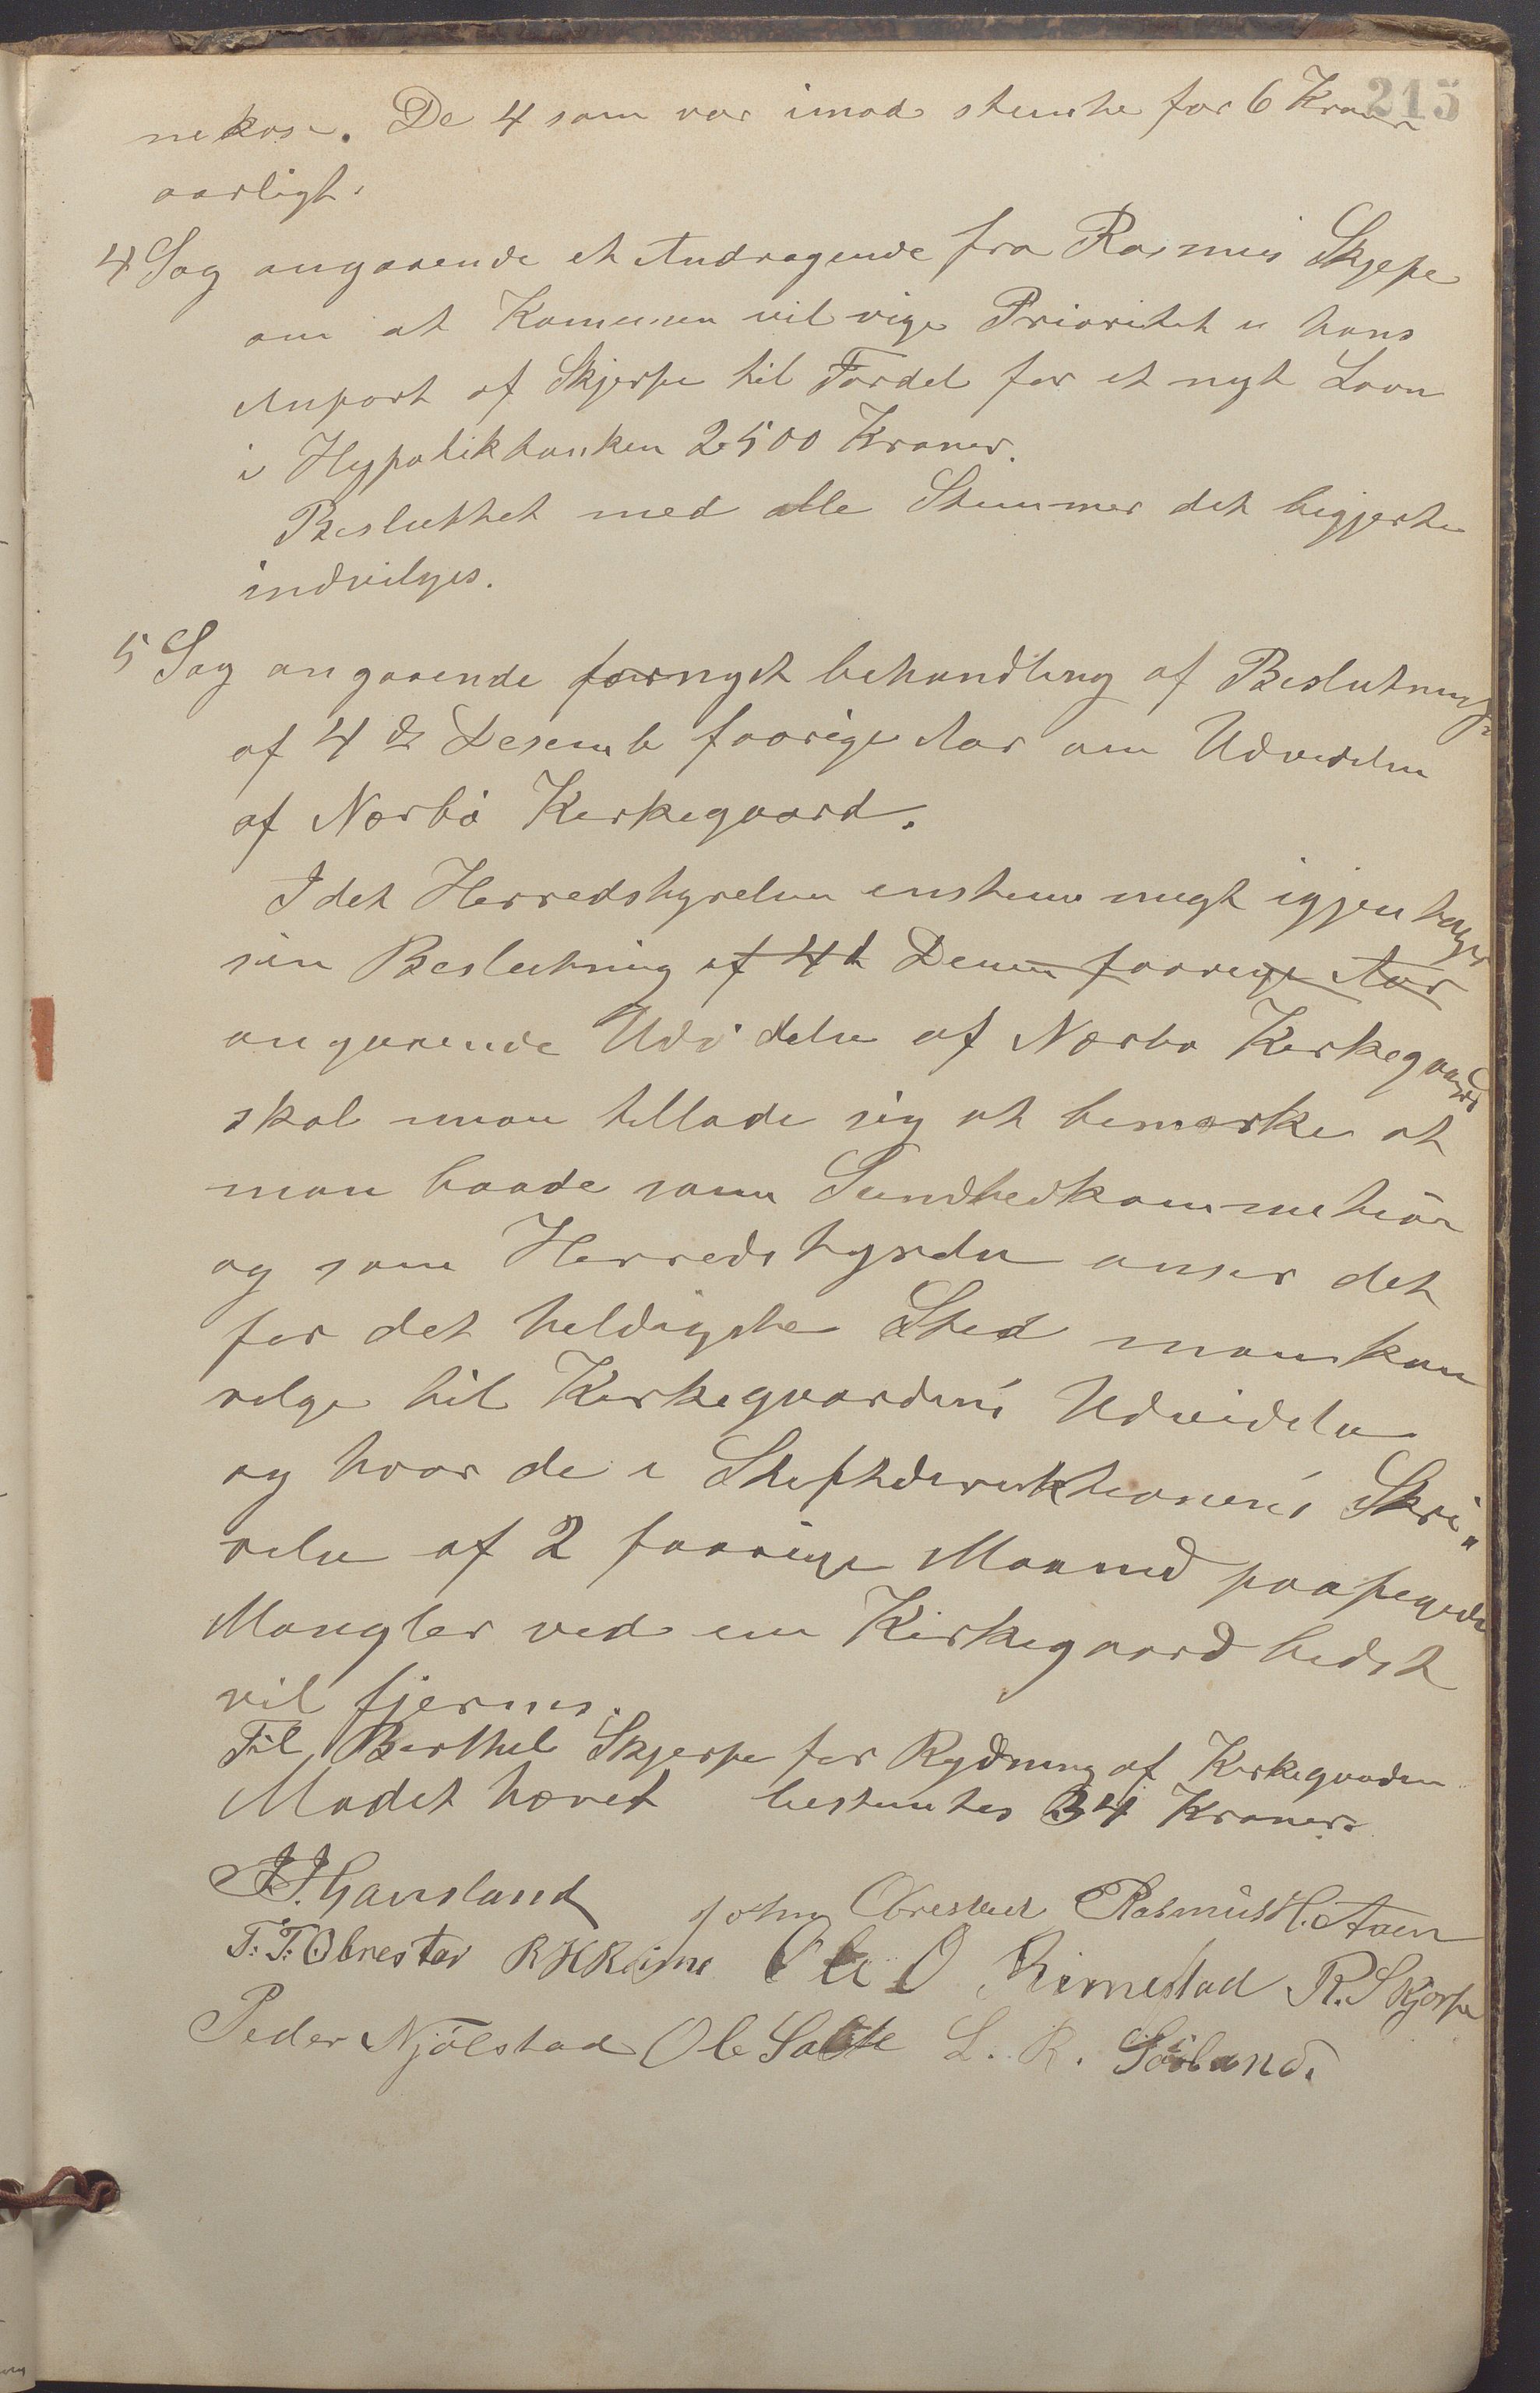 215
nekase. De 4 som var imod stemte for 6 Kroner
aarligt.
4 Sag angaaende et Andragende fra Rasmus Skjepe
om at Komunen vil vige Prioritet i hans
Anpart af Skjerpe til Fordel for et nyt Laan
i Hypotikbanken 2500 Kroner.
Besluttet med alle Stemmer det begjerte
indvilges.
5 Sag angaaende fornyet behandling af Beslutning
af 4 de Desemb faarige Aar om Udvidelse
af Nærbö Kerkegaard.
I det Herredstyrelsen enstemmigt igjentager
sin Beslutning af 4d Decem faarige Aar
angaaende Udvidelse af Nærbø Kerkegaard
skal man tillade sig at bemærke at
man baade som Sundhedkommetiön
og som Herredstyrelse anser det
for det heldigste Sted man kan
velge til Kerkegaardens Udvidelse
og hvor de i Stiftderektionens Skri"
velse af 2 faarige Maaned paapegede
Mangler ved en Kirkegaard bedst
vil fjernes.
Til Berthel Skjerpe for Rydning af Kerkegaarden
Mødet hævet bestemtes 34 Kroner.
J.J. Gausland John Obrestad Rasmus H. Aaen
T. T. Obrestad R H Reime Ole O Rimestad R. Skjerpe
Peder Njölstad Ole Salte L. R. Görland.